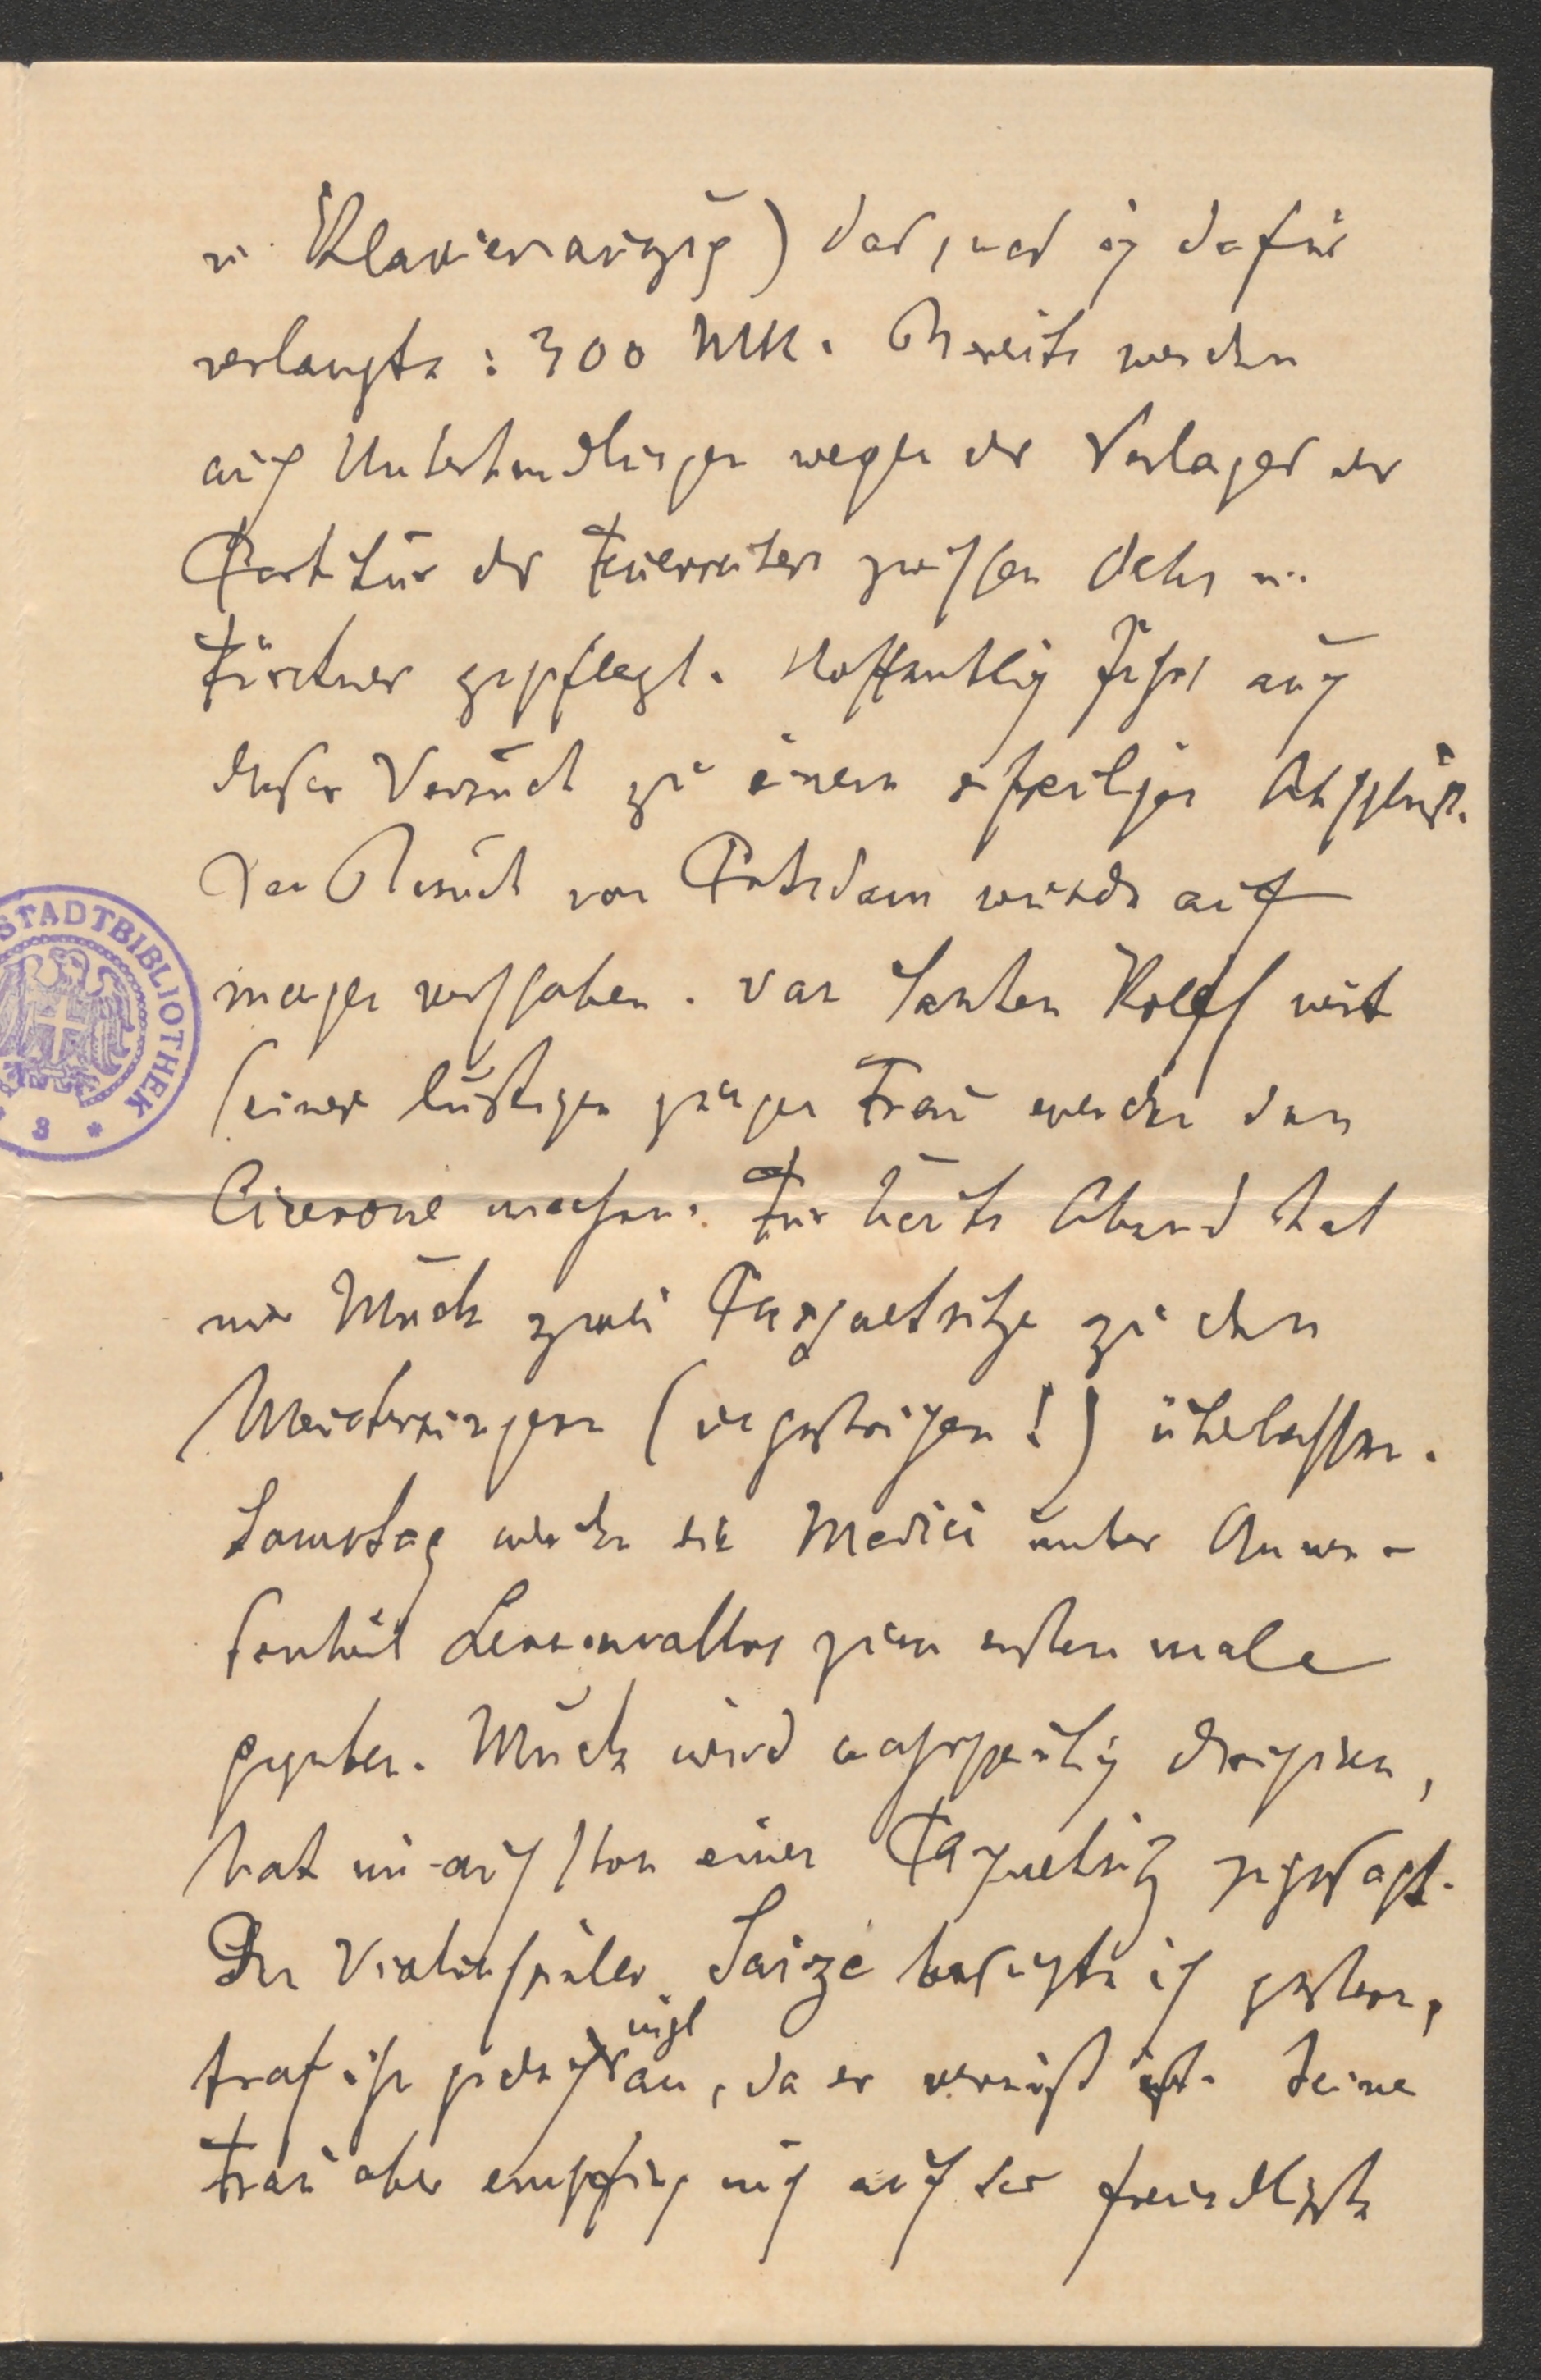 u. Klavierauszug) das, was ich dafür
verlangte: 300 MK. Bereits werden
auch Unterhandlungen wegen des Verlages der
Partitur des Feuerreiters zwischen Schott u.
Fürstner gepflegt. Hoffentlich führt auch
dieser Versuch zu einem Abschluß.
Der Besuch von Potsdam wurde auf
morgen verschoben. Van Santen Kolff mit
seiner lustigen Frau werden den
Cicerone machen. Für heute Abend hat
mir Muck zwei Parquetsitze zu den
Meistersingern (!) überlassen.
Samstag werden die Medici unter Anwe-
senheit Leoncavallos zum ersten male
gegeben. Muck wird wahrscheinlich dirigiren,
hat mir auch schon einen Parquetsitz zugesagt.
Den Violinspieler Sauze besuchte ich gestern,
traf ihn jedoch nicht an, da er verreist ist. Seine
Frau aber empfing mich auf das freundlichste
STADTBIBLIOTHEK